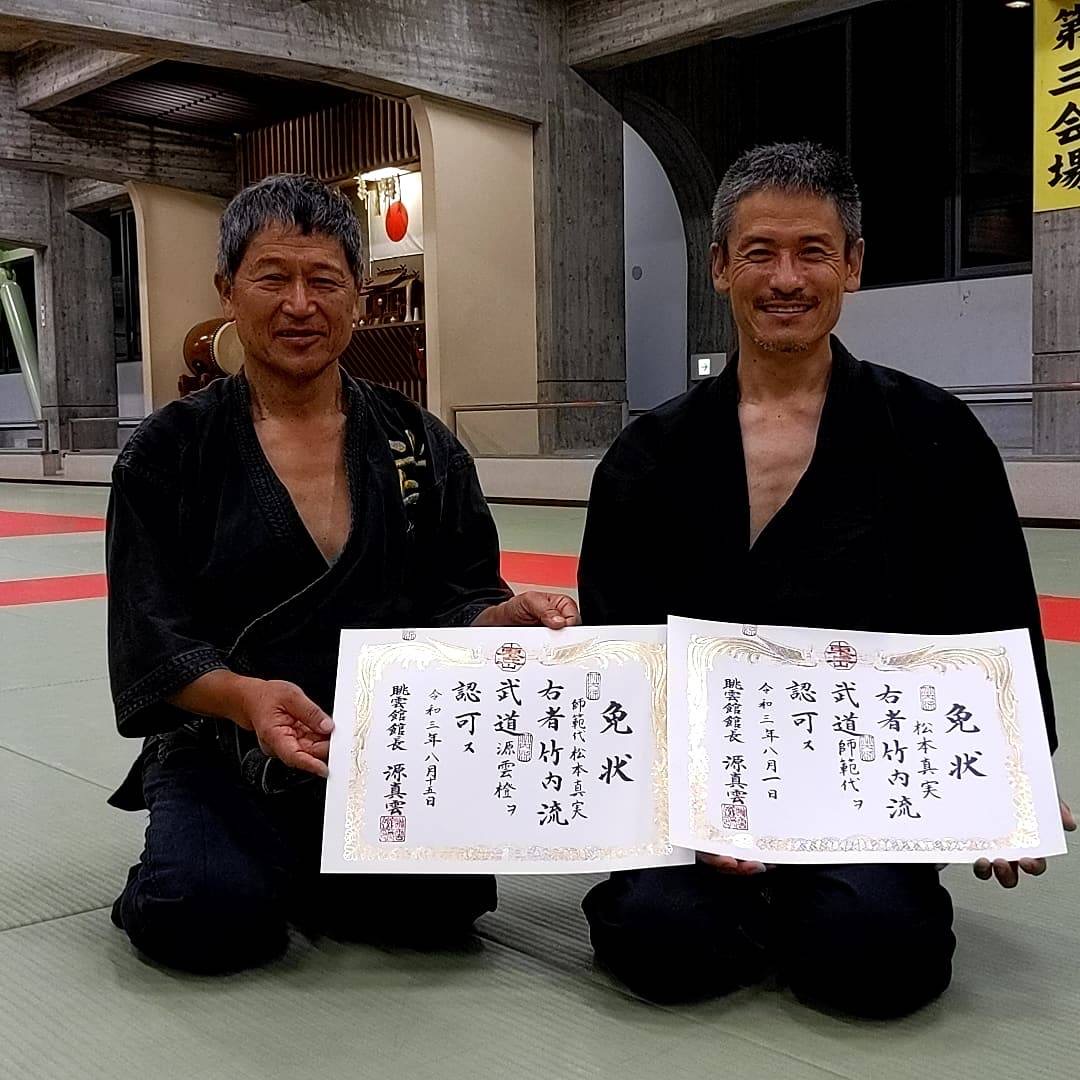 第三会場
免状
師範代 松本真実
右者竹内流
武道源雲橙ヲ
認可ス
令和三年八月十五日
眺雲館館長 源真雲
免状
松本真実
右者竹内流
武道師範代ヲ
認可ス
令和三年八月一日
眺雲館館長 源真雲